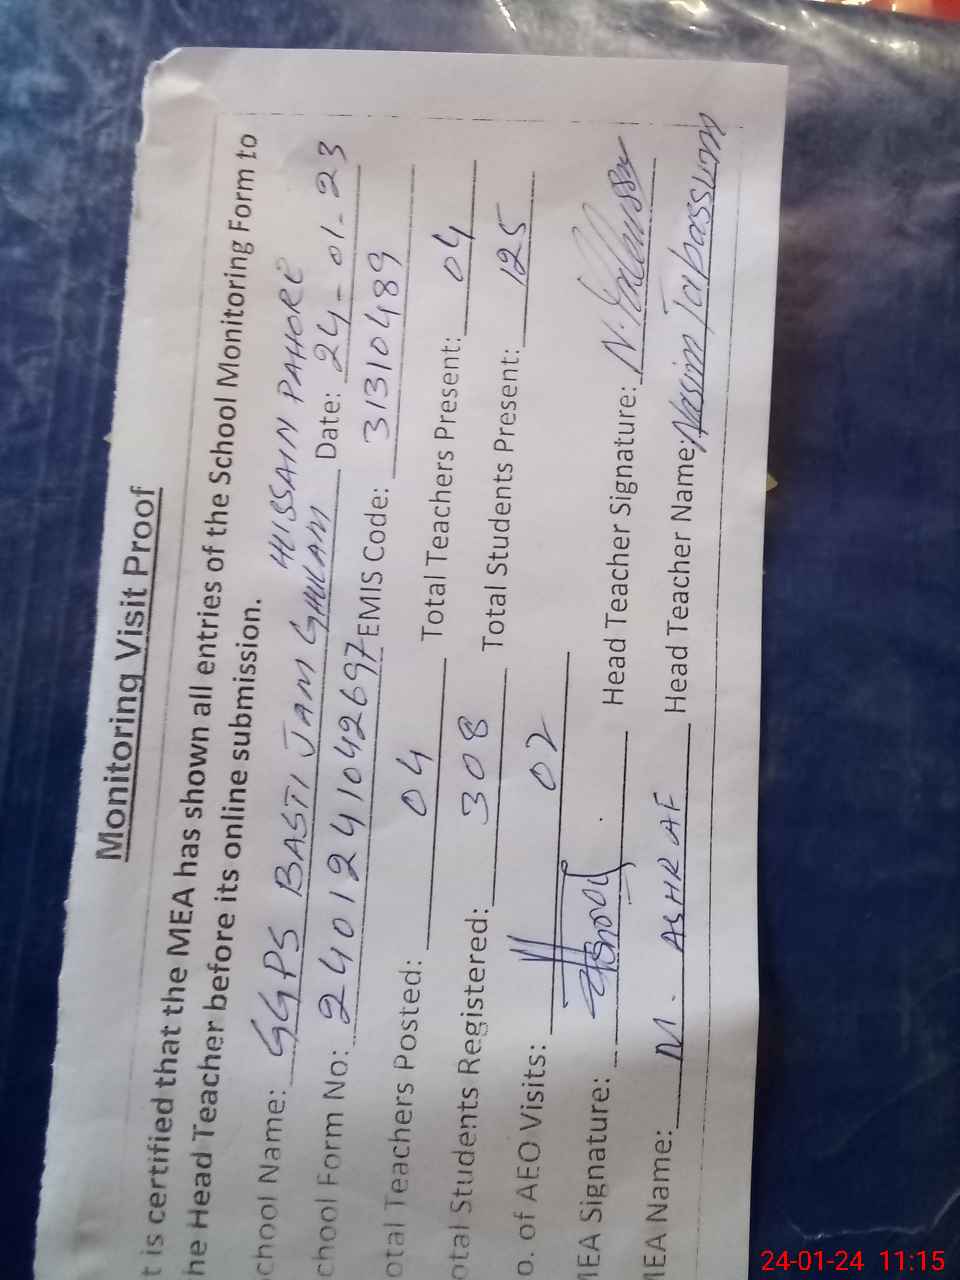 Monitoring Visit Proof
t is certified that the MEA has shown all entries of the School Monitoring Form to
he Head Teacher before its online submission.
chool Name: GGPS BASTI JAM GHULAM HUSSAIN PAHORE
chool Form No: 24012411042697 Date: 24-01-23
EMIS Code: 31310489
otal Teachers Posted: 04 Total Teachers Present: 04
otal Students Registered: 308 Total Students Present: 125
o. of AEO Visits: 02
MEA Signature: Head Teacher Signature:
MEA Name: M. ASHRAF Head Teacher Name: Nasim Tabassum
24-01-24 11:15